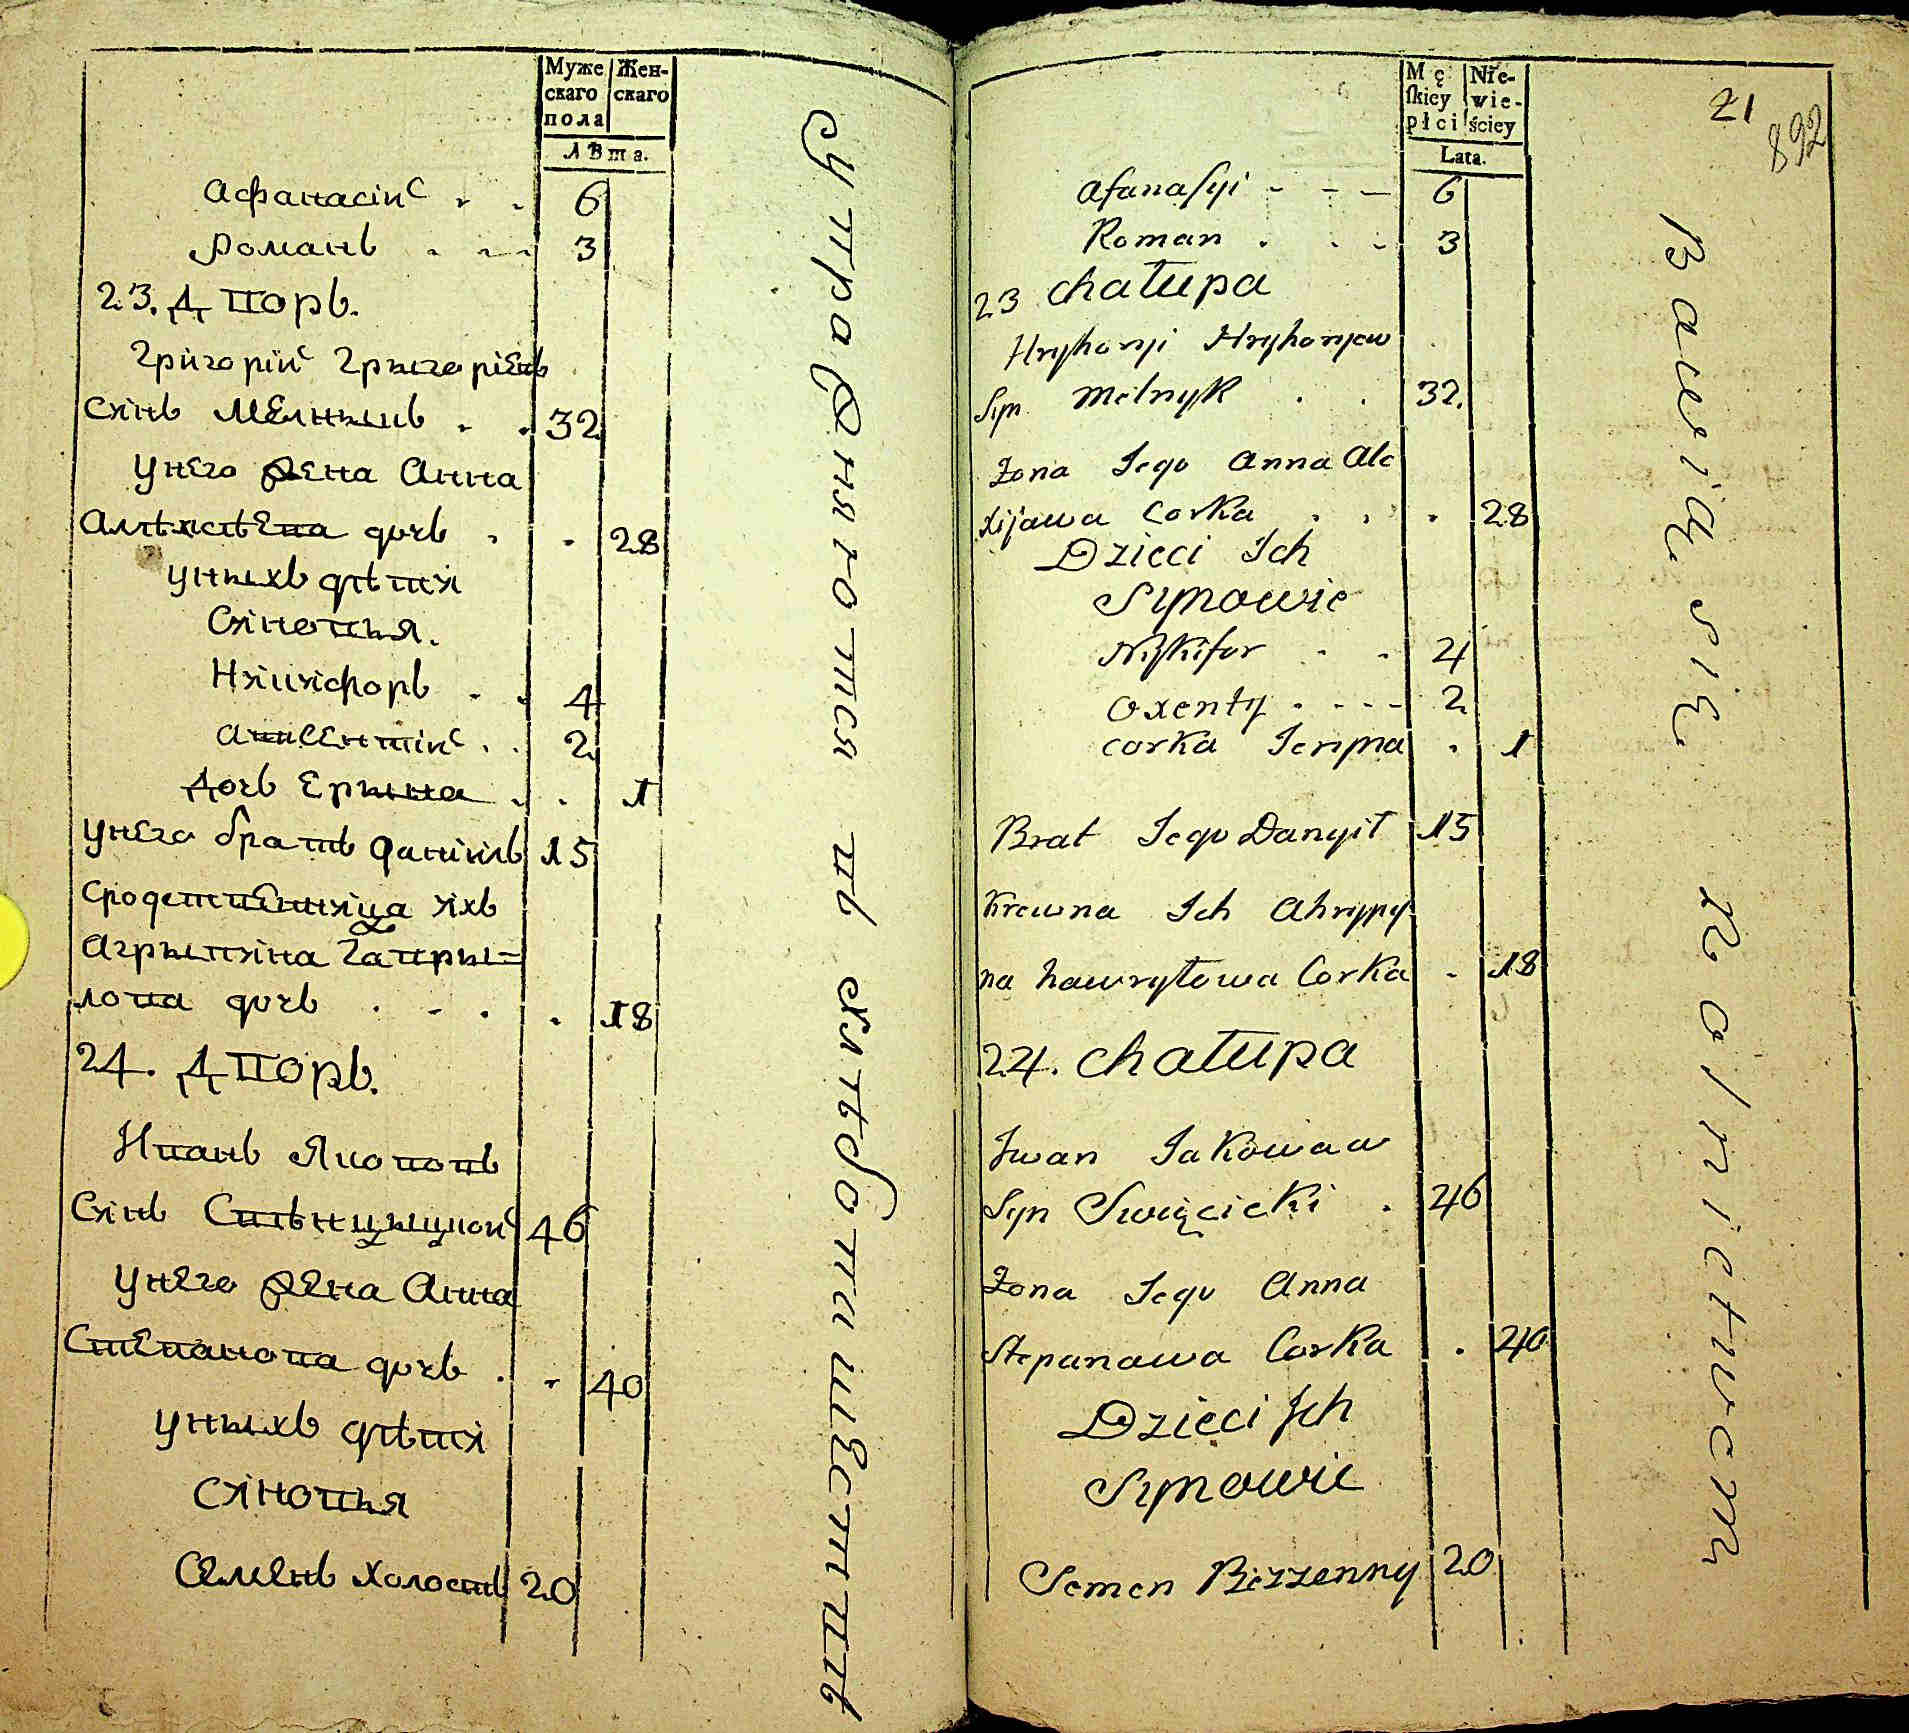 Муже Жен-
скаго скаго
пола
лѣта.
Афанасій 6
Романъ 3
23. Дворъ.
Григорій Грыгоріевъ
Сынъ Мелныкъ 32
У него жена Анна
Алѣксѣева дочь 28
У ныхъ дѣти
Сыновья.
Никифоръ 4
Авксентій 2
Дочь Ерына 1
У него братъ Даніилъ 15
Сродственница ихъ
Агрыпина Гавры-
лова дочь 18
24. Дворъ.
Иванъ Якововъ
Сынъ Свѣнцыцкой 46
У него жена Анна
Степанова дочь 40
У ныхъ дѣти
Сыновья
Семенъ холостъ 20
упражняются въ хлѣбопашествѣ
Mę Nie-
ſkiey wie-
płci ściey
Lata.
21
892
Afanasyi 6
Roman 3
23 Chałupa
Hryhoryi Hryhoryew
Syn Melnyk 32.
Żona Jego Anna Ale
xijawa Corka 28
Dzieci Ich
Synowie
Nykifor 4
Oxenty 2
Corka Jeryna 1
Brat Jego Danyił 15
Krewna Ich Ahrypy
na hawryłowa Corka 18
24. Chałupa
Iwan Jakowaw
Syn Swięcicki 46
Żona Jego Anna
Stepanawa Corka 40
Dzieci Ich
Synowie
Semen Bezzenny 20
Bawią się Rolnictwem